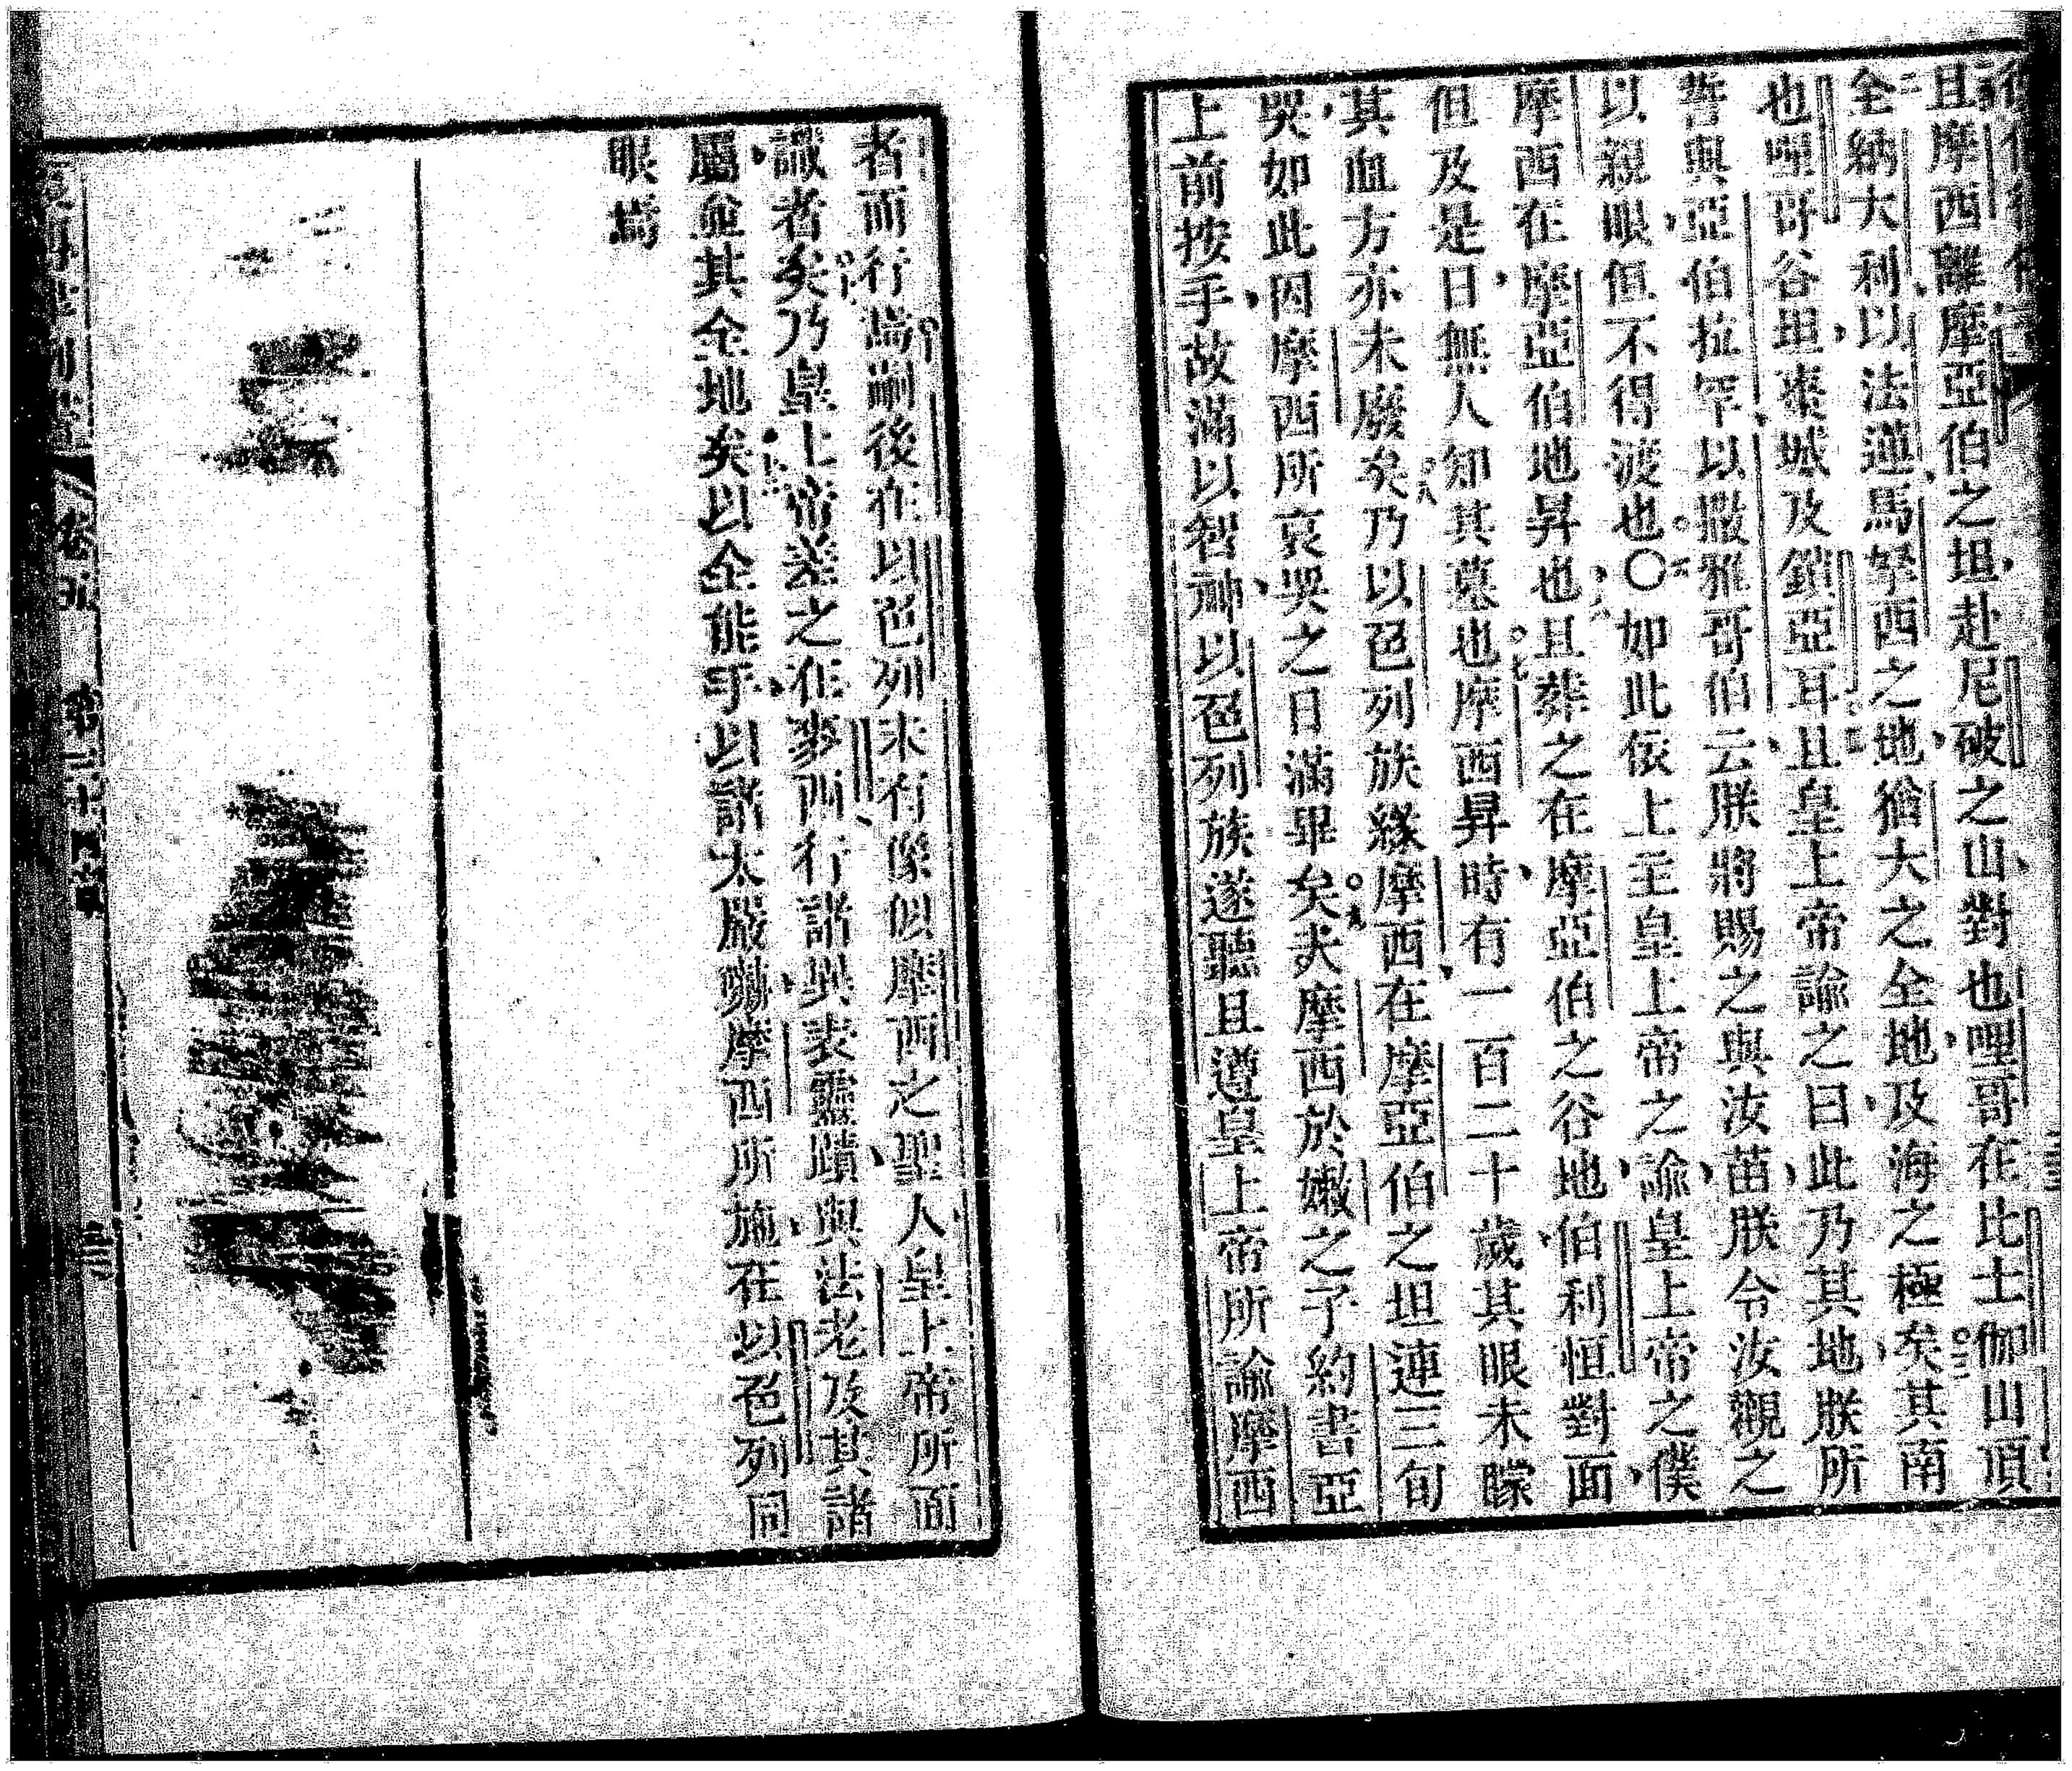 且摩西離摩亞伯之坦赴尼破之山對也哩哥在比士伽山頂
全納大利以法蓮馬拏西之地猶大之全地及海之極矣其南
也哩哥谷坦棗城及鎖亞耳且皇上帝諭之曰此乃其地朕所
誓與亞伯拉罕以撒雅哥伯云朕將賜之與汝苗朕令汝觀之
以親眼但不得渡也○如此依上主皇上帝之諭皇上帝之僕
摩西在摩亞伯地昇也且葬之在摩亞伯之谷地伯利恒對面
但及是日無人知其墓也摩西昇時有一百二十歲其眼未矇
其血方亦未廢矣乃以色列族緣摩西在摩亞伯之坦連三旬
哭如此因摩西所哀哭之日滿畢矣夫摩西於嫩之子約書亞
上前按手故滿以智神以色列族遂聽且遵皇上帝所諭摩西
者而行焉嗣後在以色列未有傑似摩西之聖人皇上帝所面
識者矣乃皇上帝差之在麥西行諸異表靈蹟與法老及其諸
屬並其全地矣以全能手以諸太嚴勢摩西所施在以色列同
眼焉
卷五 第三十四章